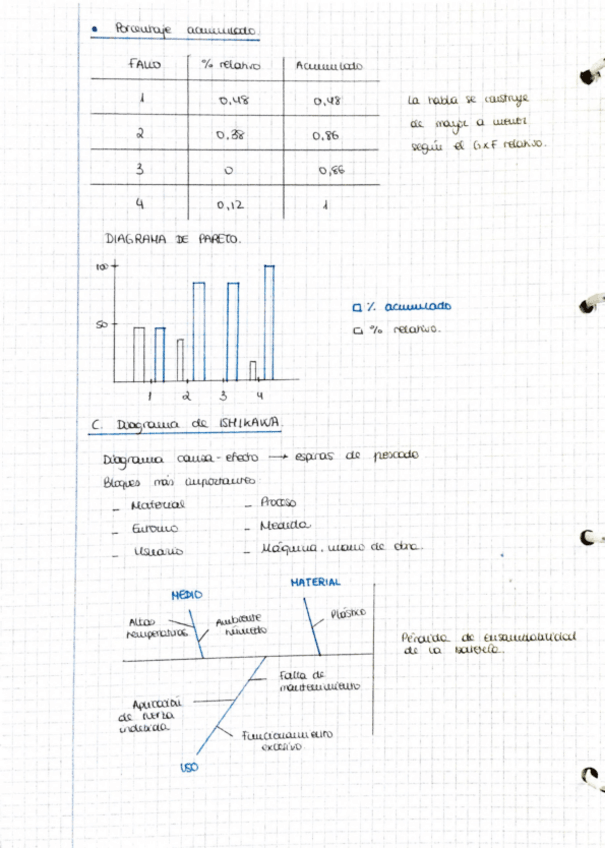 • Porcentaje acumulado.
FALLO % relativo Acumulado
1 0,48 0,48
2 0,38 0,86
3 0 0,86
4 0,12 1
La tabla se construye
de mayor a menor
según el GxF relativo.
DIAGRAMA DE PARETO.
100
50
1 2 3 4
% acumulado
% relativo.
C. Diagrama de ISHIKAWA.
Diagrama causa-efecto → espinas de pescado
Bloques más importantes
- Material - Proceso
- Entorno - Medida
- Usuario - Máquina, mano de obra.
MEDIO MATERIAL
Altas temperaturas
Ambiente húmedo
Plástico
Pérdida de
de la batería.
Falta de
mantenimiento
Aplicación
de fuerza
indebida
Funcionamiento
excesivo
USO